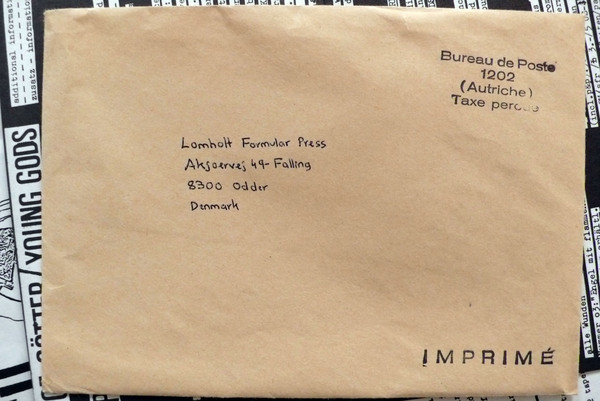 Bureau de Poste
1202
(Autriche)
Taxe perçue
Lomholt Formular Press
Aksjoervej 49-Falling
8300 Odder
Denmark
IMPRIMÉ
GÖTTER/YOUNG GODS
additional informatio
zusatz - informations
alle Wunden